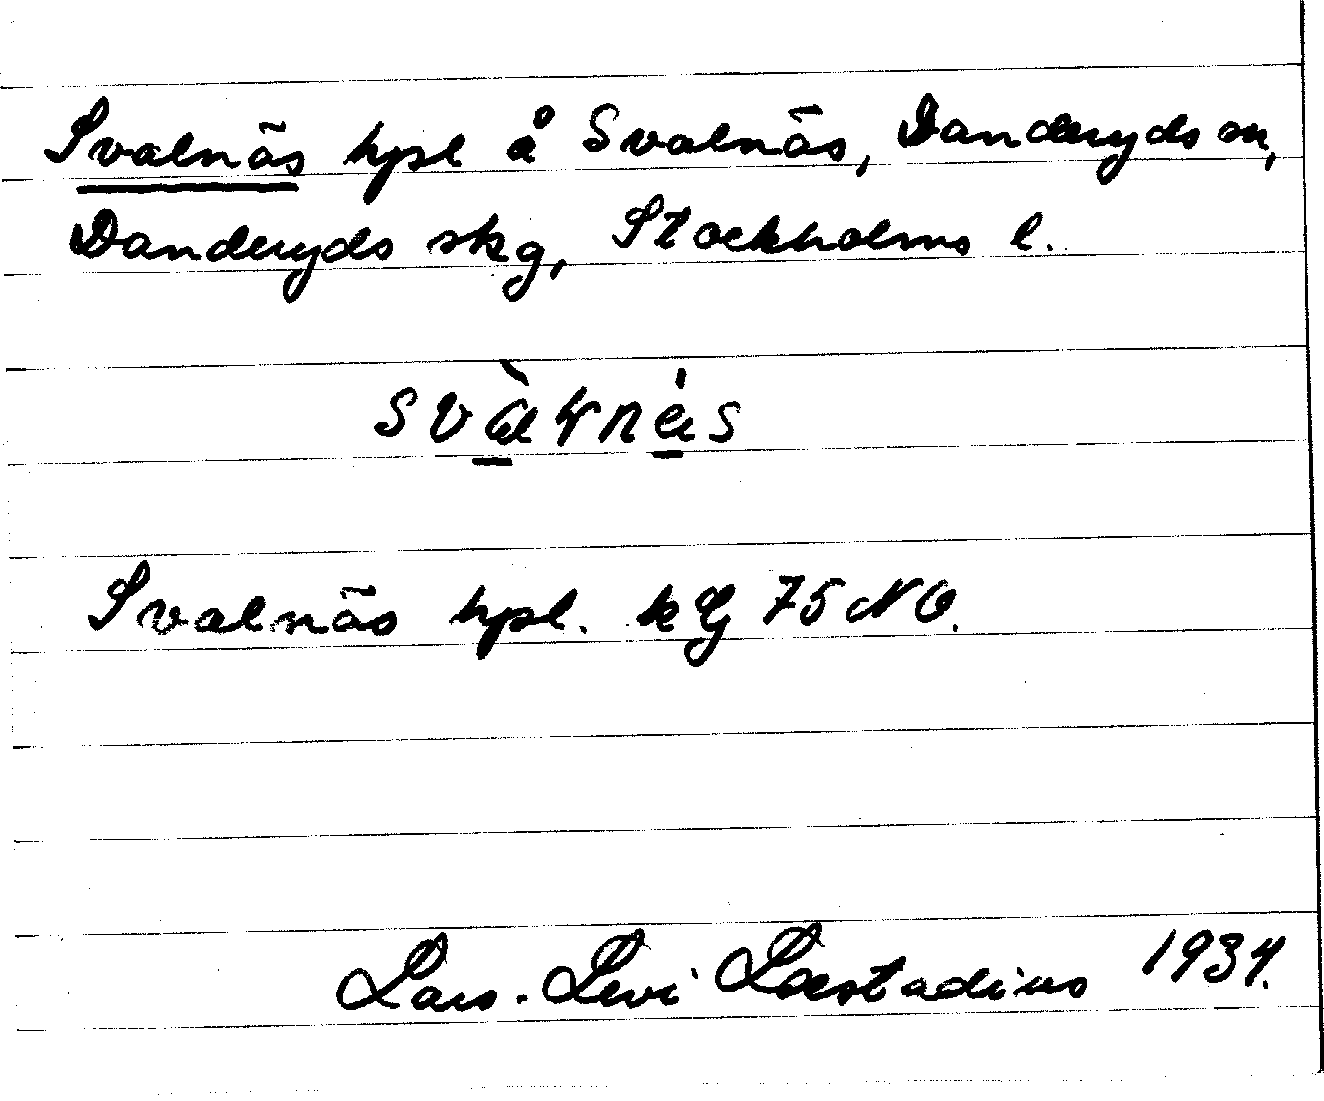 Svalnäs hpl å Svalnäs, Danderyds sn,
Danderyds skg, Stockholms l.
Svalnäs hpl. kG 75 NO.
Lars-Levi Læstadius 1934.